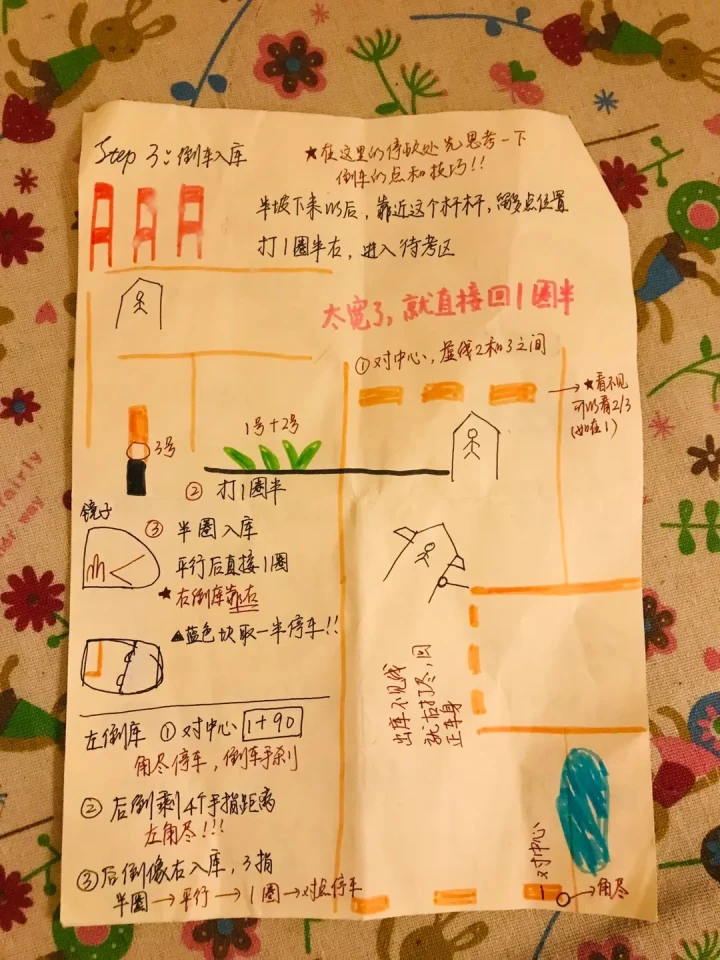 Step 3: 倒车入库
★在这里的停缺处先思考一下
倒车的点和技巧!!
半坡下来以后，靠近这个杆杆，留多点位置
打1圈半右，进入待考区
太宽了，就直接回1圈半
①对中心，虚线2和3之间
★看不见
可以看2/3
(如在1)
1号+2号
3号
② 打1圈半
镜子
③ 半圈入库
平行后直接1圈
★右倒库靠右
▲蓝色块取一半停车!!
出库不见线
就右打尽，回
正车身
左倒库 ①对中心 1+90
角尽停车，倒车手刹
②后倒剩4个手指距离
左角尽!!!
③后倒像右入库，3指
半圈→平行→1圈→对点停车
对中心
角尽
fairly
way